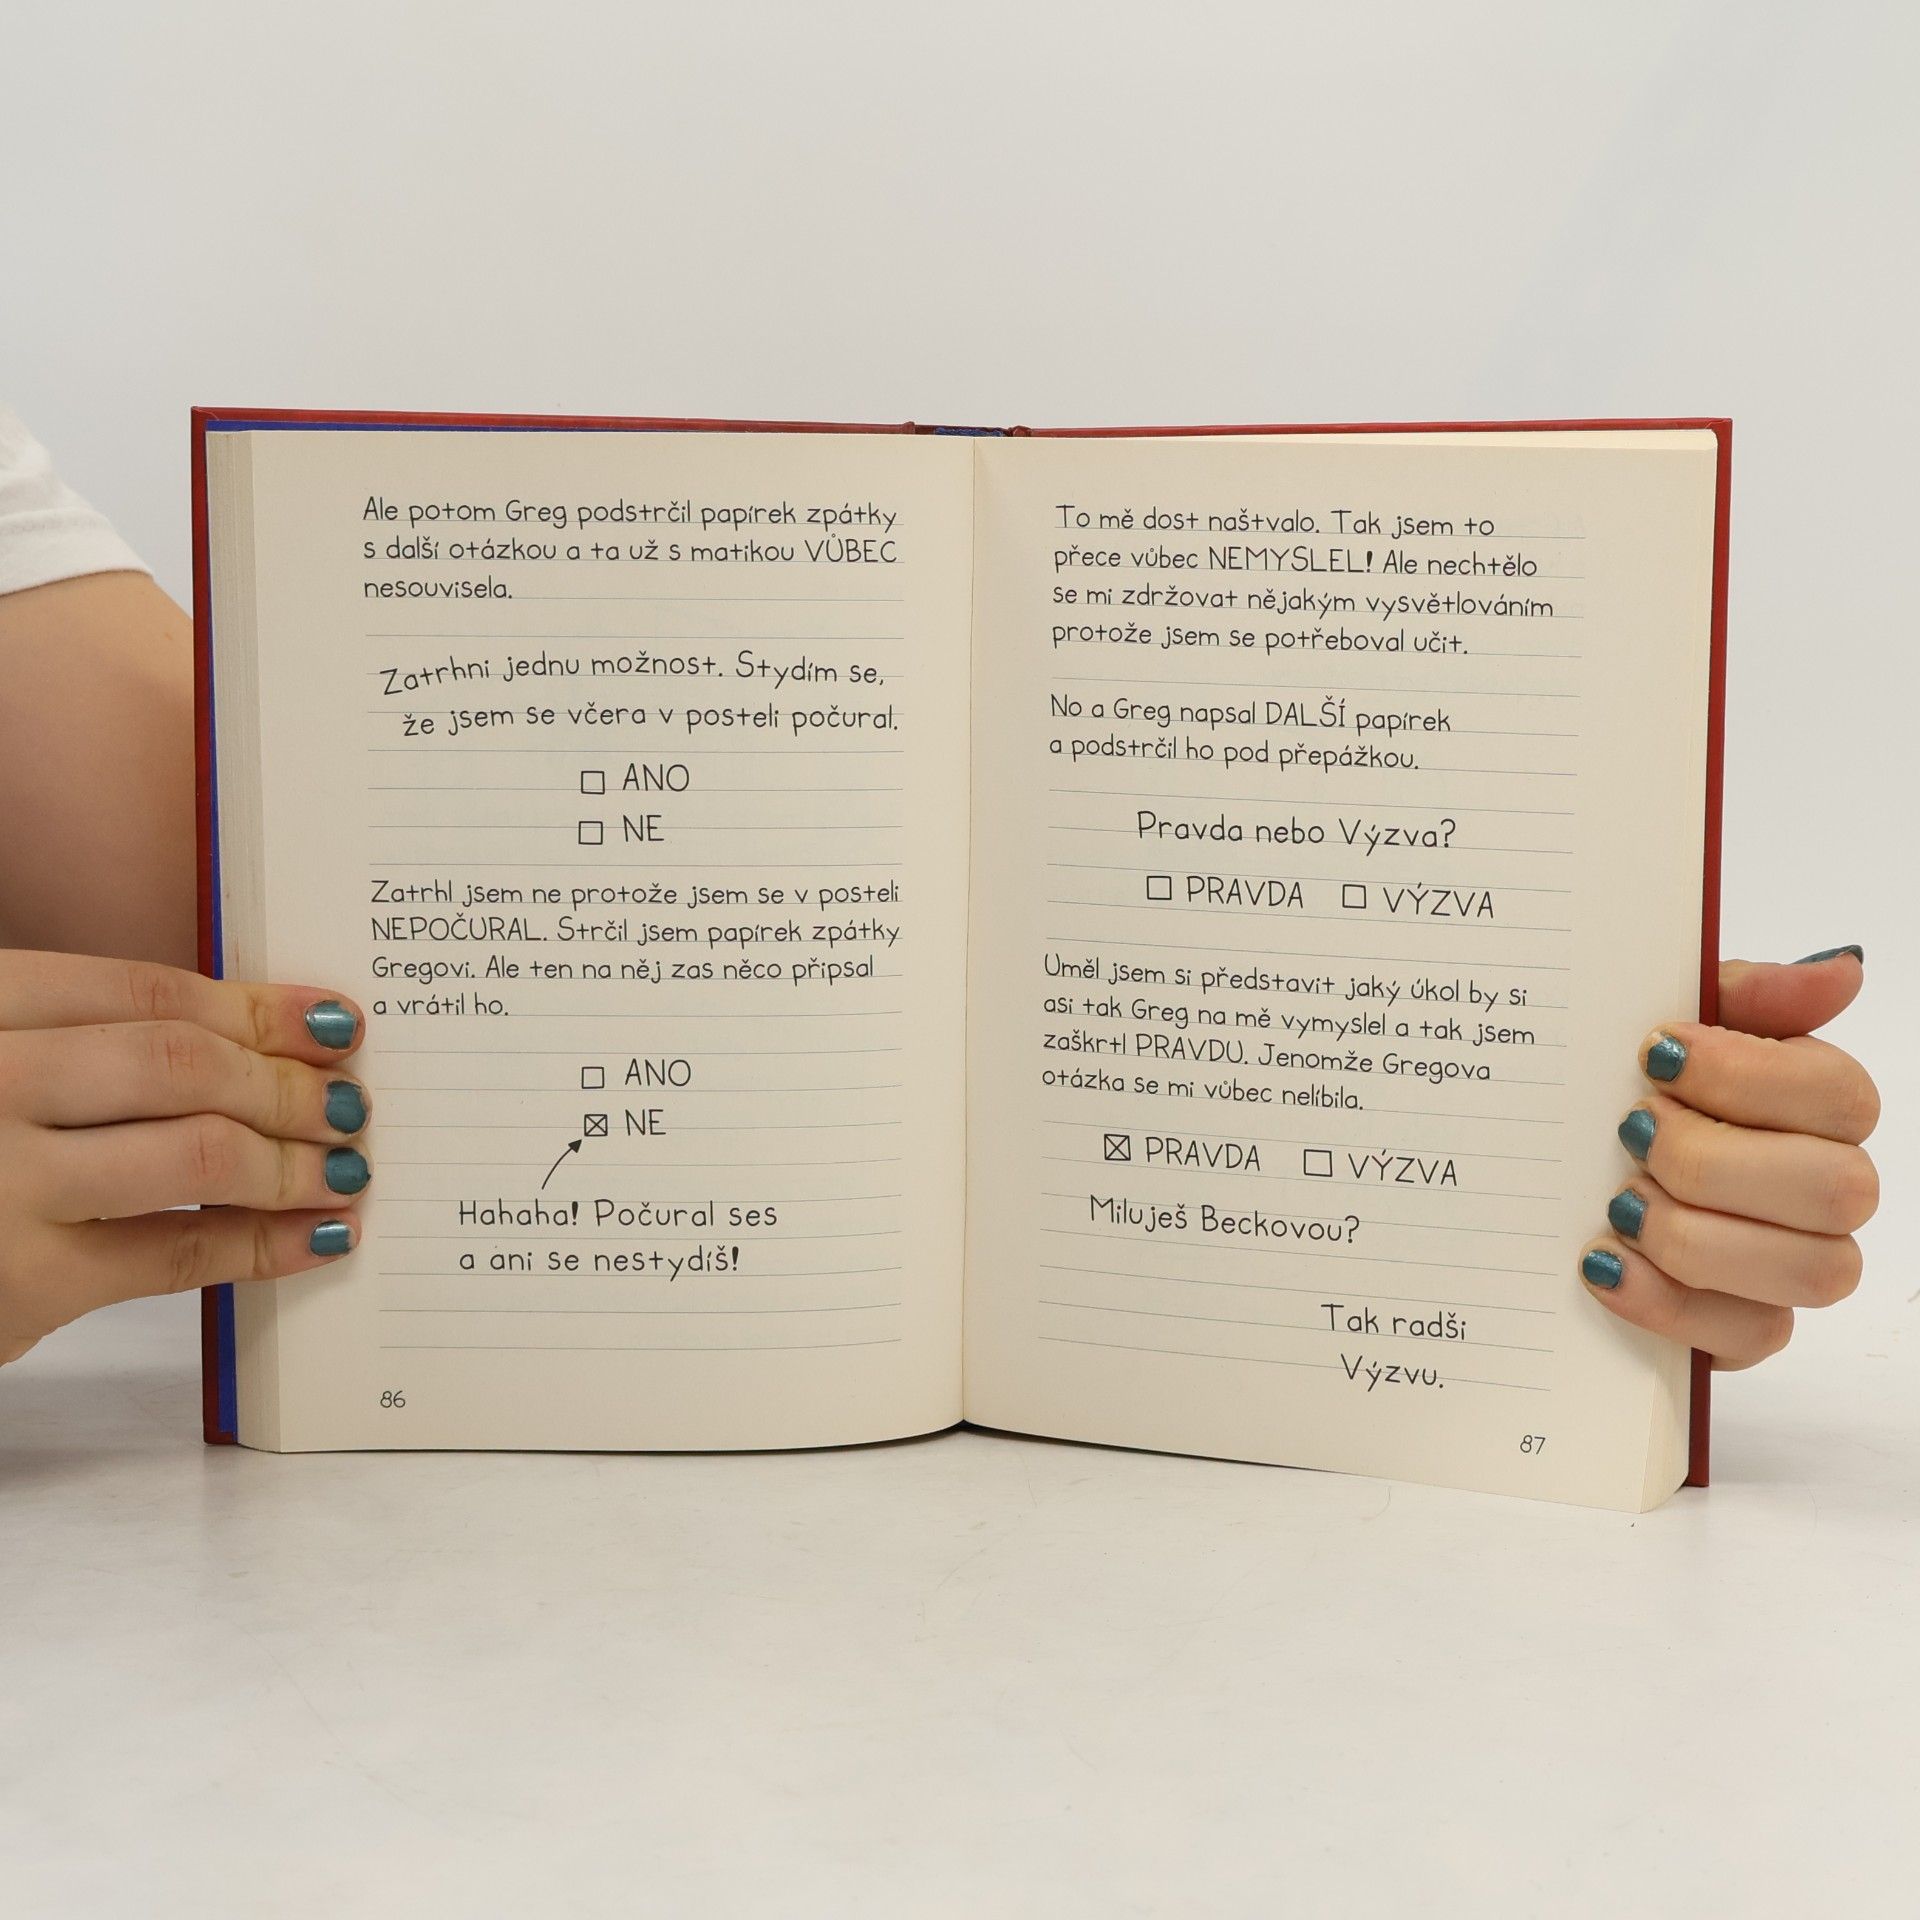 Ale potom Greg podstrčil papírek zpátky
s další otázkou a ta už s matikou VŮBEC
nesouvisela.
Zatrhni jednu možnost. Stydím se,
že jsem se včera v posteli počural.
☐ ANO
☐ NE
Zatrhl jsem ne protože jsem se v posteli
NEPOČURAL. Strčil jsem papírek zpátky
Gregovi. Ale ten na něj zas něco připsal
a vrátil ho.
☐ ANO
☒ NE
Hahaha! Počural ses
a ani se nestydíš!
86
To mě dost naštvalo. Tak jsem to
přece vůbec NEMYSLEL! Ale nechtělo
se mi zdržovat nějakým vysvětlováním
protože jsem se potřeboval učit.
No a Greg napsal DALŠÍ papírek
a podstrčil ho pod přepážkou.
Pravda nebo Výzva?
☐ PRAVDA ☐ VÝZVA
Uměl jsem si představit jaký úkol by si
asi tak Greg na mě vymyslel a tak jsem
zaškrtl PRAVDU. Jenomže Gregova
otázka se mi vůbec nelíbila.
☒ PRAVDA ☐ VÝZVA
Miluješ Beckovou?
Tak radši
Výzvu.
87